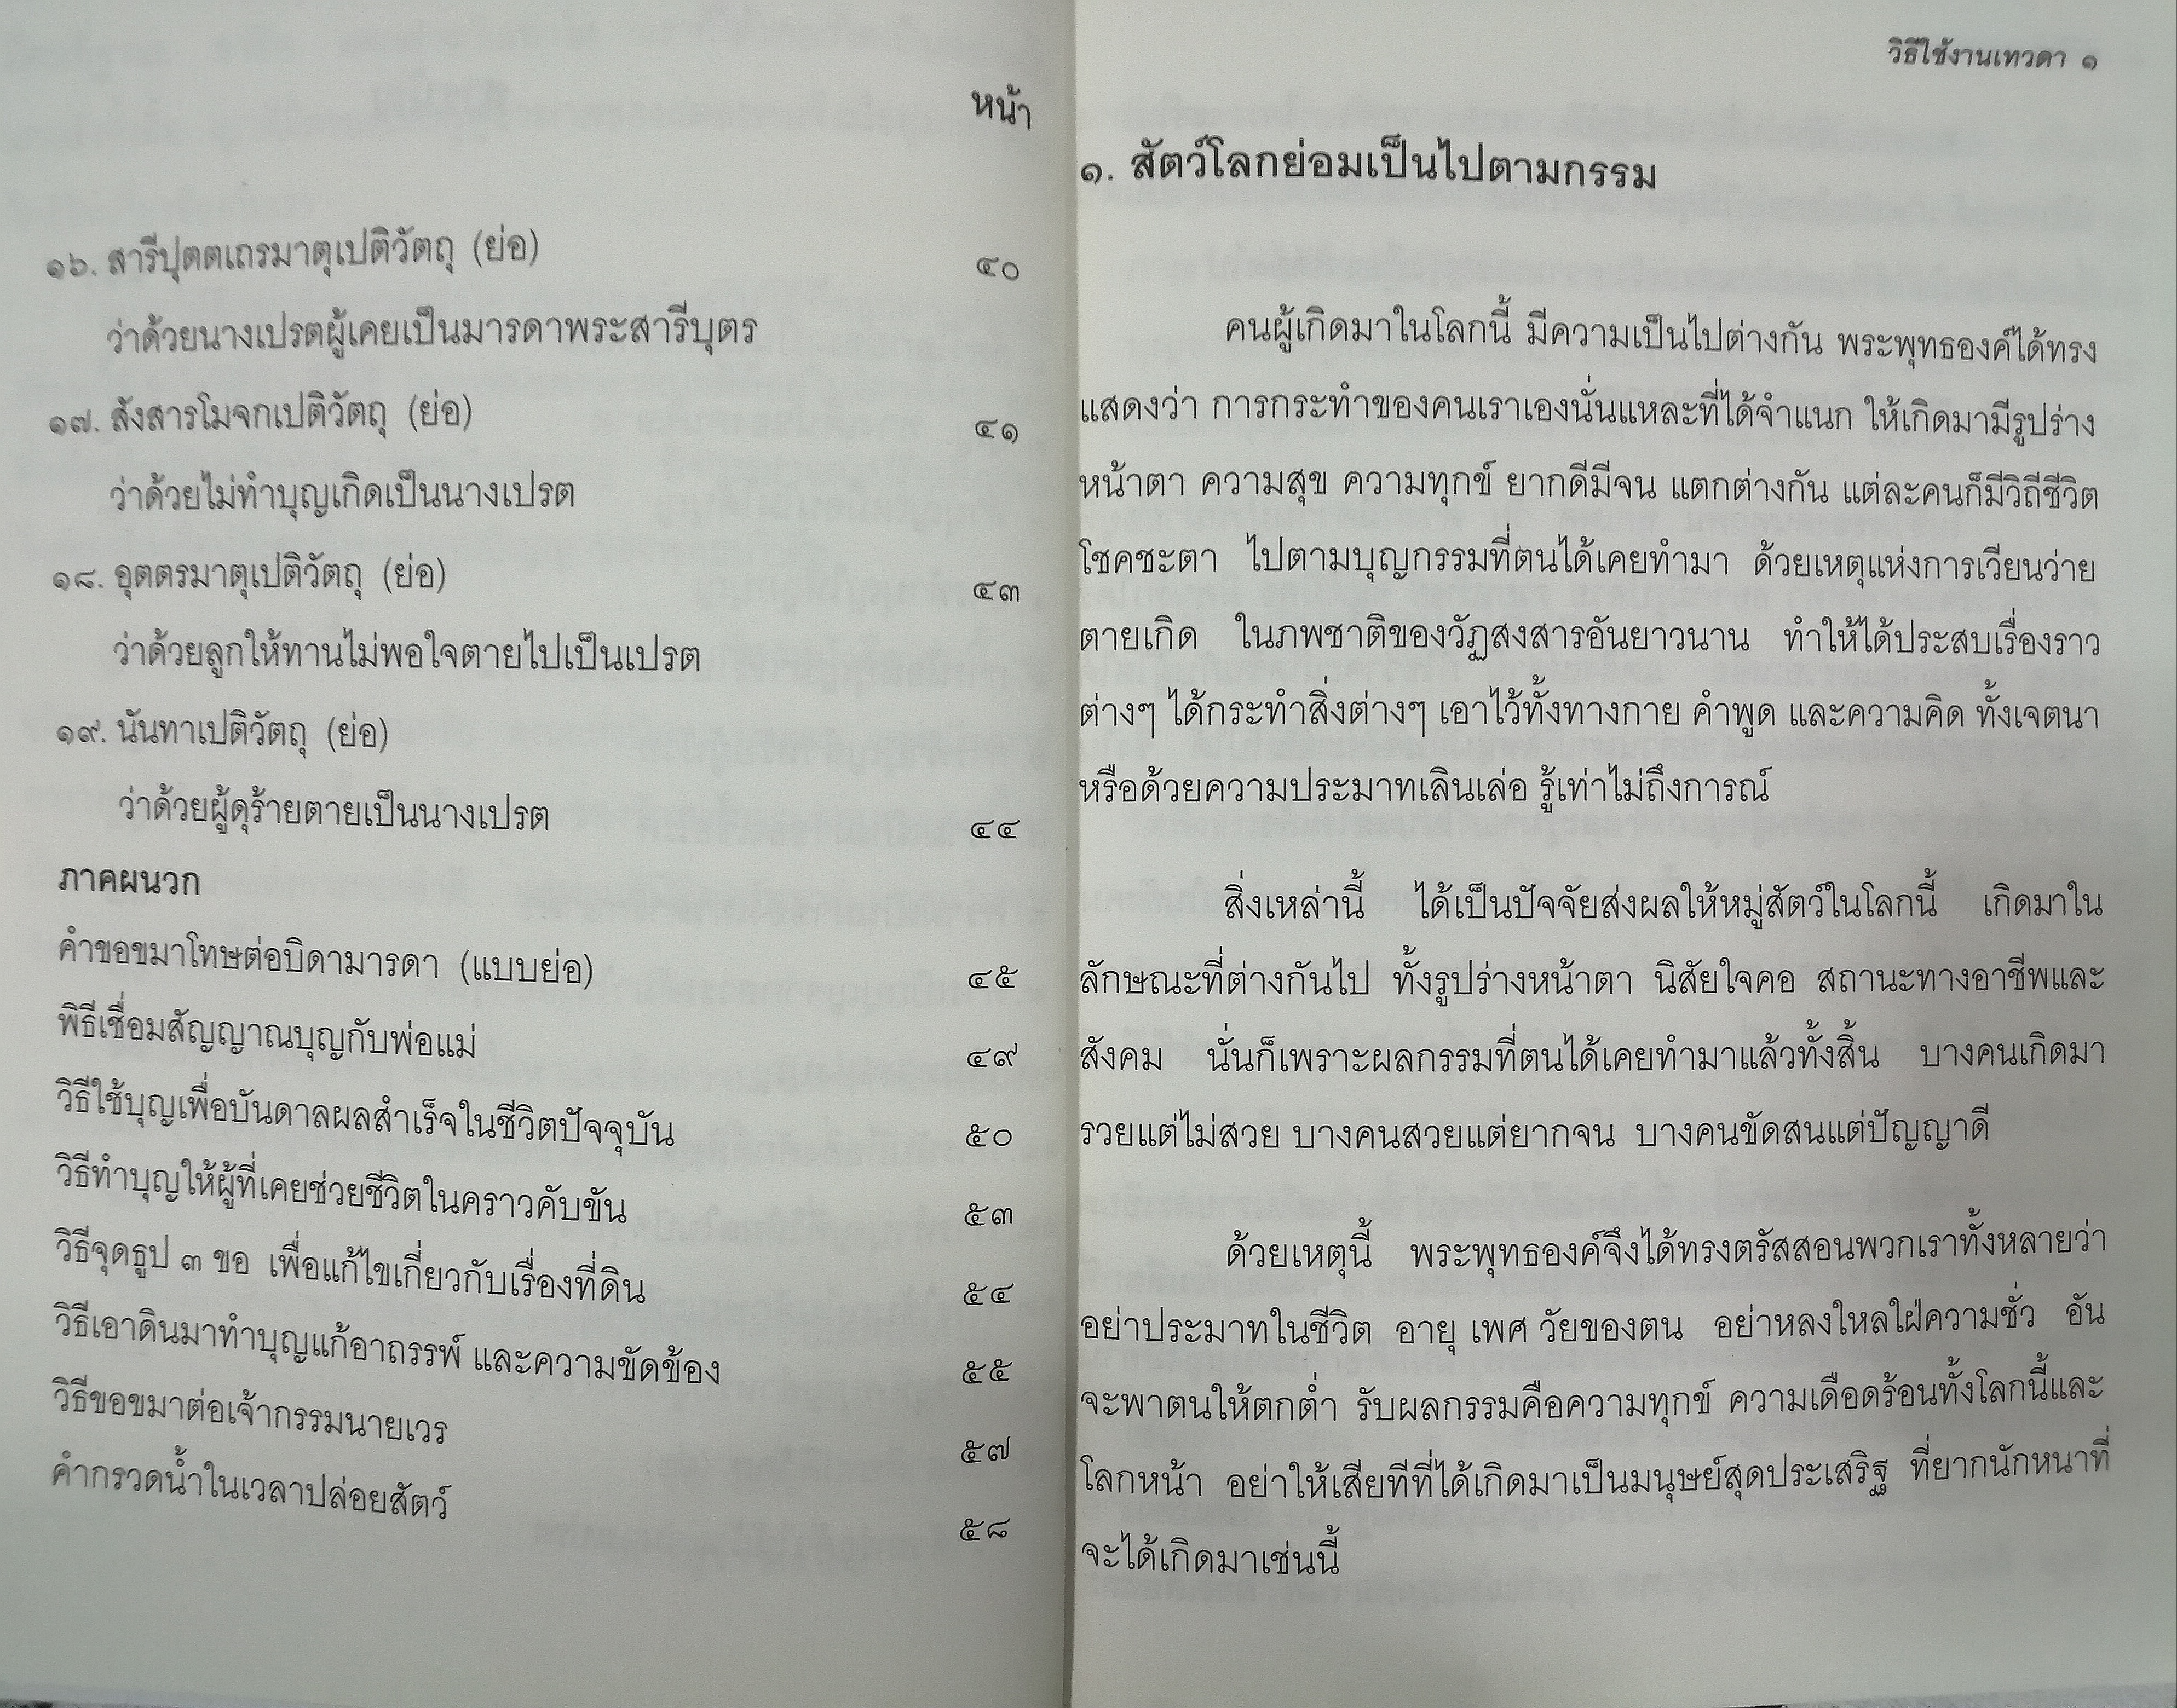 หน้า
๑๖. สารีปุตตเถรมาตุเปติวัตถุ (ย่อ) ๔๐
ว่าด้วยนางเปรตผู้เคยเป็นมารดาพระสารีบุตร
๑๗. สังสารโมจกเปติวัตถุ (ย่อ) ๔๑
ว่าด้วยไม่ทำบุญเกิดเป็นนางเปรต
๑๘. อุตตรมาตุเปติวัตถุ (ย่อ) ๔๓
ว่าด้วยลูกให้ทานไม่พอใจตายไปเป็นเปรต
๑๙. นันทาเปติวัตถุ (ย่อ)
ว่าด้วยผู้ดุร้ายตายเป็นนางเปรต ๔๔
ภาคผนวก
คำขอขมาโทษต่อบิดามารดา (แบบย่อ) ๔๕
พิธีเชื่อมสัญญาณบุญกับพ่อแม่ ๔๙
วิธีใช้บุญเพื่อบันดาลผลสำเร็จในชีวิตปัจจุบัน ๕๐
วิธีทำบุญให้ผู้ที่เคยช่วยชีวิตในคราวคับขัน ๕๓
วิธีจุดธูป ๓ ขอ เพื่อแก้ไขเกี่ยวกับเรื่องที่ดิน ๕๔
วิธีเอาดินมาทำบุญแก้อาถรรพ์ และความขัดข้อง ๕๕
วิธีขอขมาต่อเจ้ากรรมนายเวร ๕๗
คำกรวดน้ำในเวลาปล่อยสัตว์ ๕๘
วิธีใช้งานเทวดา ๑
๑. สัตว์โลกย่อมเป็นไปตามกรรม
คนผู้เกิดมาในโลกนี้ มีความเป็นไปต่างกัน พระพุทธองค์ได้ทรง
แสดงว่า การกระทำของคนเราเองนั่นแหละที่ได้จำแนก ให้เกิดมามีรูปร่าง
หน้าตา ความสุข ความทุกข์ ยากดีมีจน แตกต่างกัน แต่ละคนก็มีวิถีชีวิต
โชคชะตา ไปตามบุญกรรมที่ตนได้เคยทำมา ด้วยเหตุแห่งการเวียนว่าย
ตายเกิด ในภพชาติของวัฏสงสารอันยาวนาน ทำให้ได้ประสบเรื่องราว
ต่างๆ ได้กระทำสิ่งต่างๆ เอาไว้ทั้งทางกาย คำพูด และความคิด ทั้งเจตนา
หรือด้วยความประมาทเลินเล่อ รู้เท่าไม่ถึงการณ์
สิ่งเหล่านี้ ได้เป็นปัจจัยส่งผลให้หมู่สัตว์ในโลกนี้ เกิดมาใน
ลักษณะที่ต่างกันไป ทั้งรูปร่างหน้าตา นิสัยใจคอ สถานะทางอาชีพและ
สังคม นั่นก็เพราะผลกรรมที่ตนได้เคยทำมาแล้วทั้งสิ้น บางคนเกิดมา
รวยแต่ไม่สวย บางคนสวยแต่ยากจน บางคนขัดสนแต่ปัญญาดี
ด้วยเหตุนี้ พระพุทธองค์จึงได้ทรงตรัสสอนพวกเราทั้งหลายว่า
อย่าประมาทในชีวิต อายุ เพศ วัยของตน อย่าหลงใหลใฝ่ความชั่ว อัน
จะพาตนให้ตกต่ำ รับผลกรรมคือความทุกข์ ความเดือดร้อนทั้งโลกนี้และ
โลกหน้า อย่าให้เสียทีที่ได้เกิดมาเป็นมนุษย์สุดประเสริฐ ที่ยากนักหนาที่
จะได้เกิดมาเช่นนี้